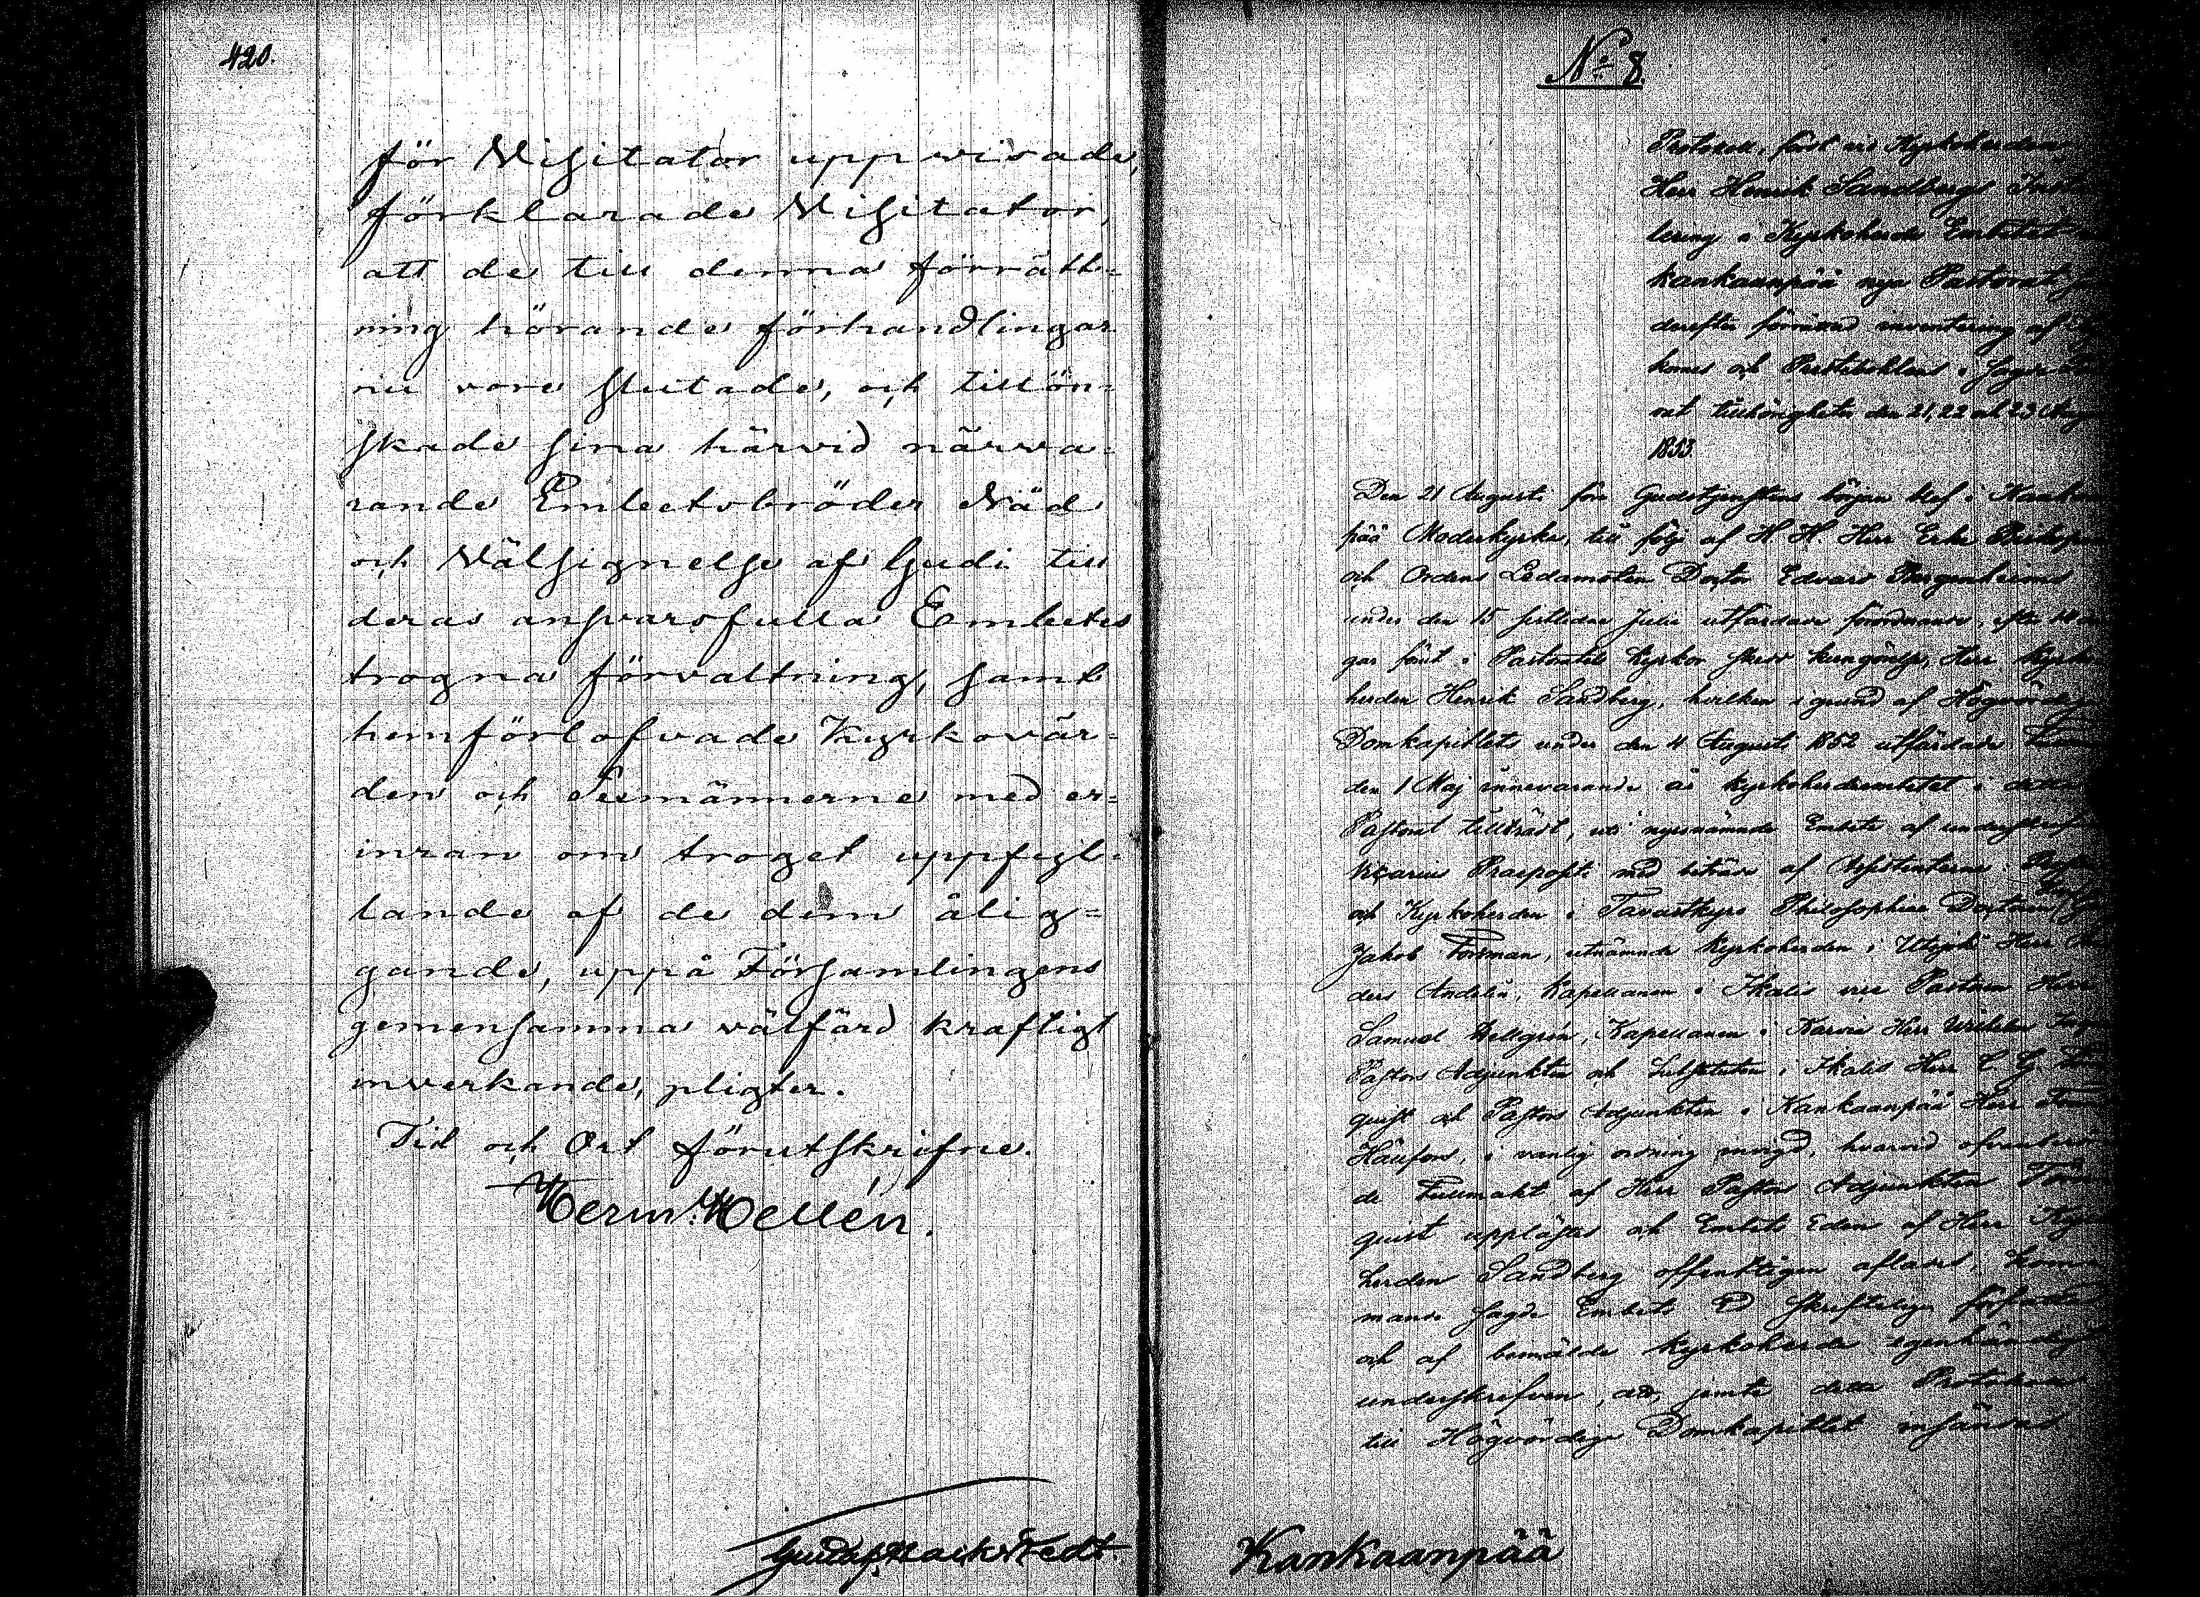 420.
för Visitator uppvisade,
förklarade Visitator,
att de till denna förrätt=
ning hörande förhandlingar
nu vore slutade, och tillön=
skade sina härvid närva=
rande Embetsbröder Nåd
och Välsignelse af Gud i till
deras ansvarsfulla Embetes
trogna förvaltning, samt
hemförlofvade Kyrkovär=
den och Sexmännerne med er=
inran om troget uppfyl=
lande af de dem ålig=
gande, uppå Församlingens
gemensamma välfärd kraftigt
inverkande, pligter.
Tid och Ort förutskrifne.
Herm: Hellén.
No 8.
Protokoll, fördt vid Kyrkoherden
Herr Henrik Sandbergs
lering i Kyrkoherde Embetet
Kankaanpää nya Pastorat
derefter förrättad inventering af
kones och Prestebohlens i
rat tillhörigheter den 21, 22 och 23
1853.
Den 21 Augusti före Gudstjenstens början blef i
pää Moderkyrka, till följe af H. H. Herr Erke Biskopen
och Ordens Ledamoten Doctor Edvard Bergenheims
under den 15 sistledne Julii utfärdade förordnande, efter
gar förut i Pastoratets Kyrkor skedd kungörelse, Herr Kyrko
herden Henrik Sandberg, hvilken i grund af Högvördiga
Domkapitlets under den 4 Augusti 1852 utfärdade
den 1 Maj innevarande år Kyrkoherdeembetet i detta
Pastorat tillträdt, uti nysnämnde Embete af
Vicarius Praepositi med biträde af Assistenterne:
och Kyrkoherden i Tavastkyro Philosophiae Doctorn
Jakob Forsman, utnämnde Kyrkoherden i Herr
ders Andelin, Kapellanen i Ikalis vice Pastorn Herr
Samuel Hellgrén, Kapellanen i Karvia Herr
Pastors Adjunkten och i Ikalis Herr C G
quist och Pastors Adjunkten i Kankaanpää Herr
i vanlig ordning invigd, hvarvid
de Fullmakt af Herr Pastors Adjunkten
quist upplästes och Embets Eden af Herr
herden Sandberg offentligen aflades;
mande sagde Embets Ed skrifteligen författad
och af bemälde Kyrkoherde egenhändigt
underskrifven, att, jemte detta Protokoll
till Högvördiga Domkapitlet insändas
Kankaanpää